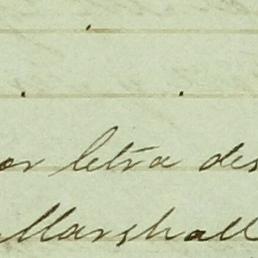 or letra des
Marshall